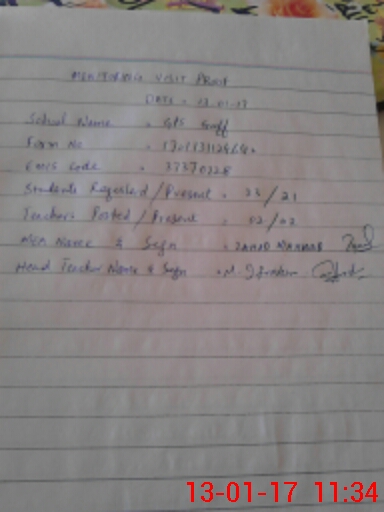 MONITORING VISIT PROOF
DATE = 13-01-17
School Name = GPS
Form No =
EMIS Code = 37370228
Students Registerd / Present = 23 / 21
Teachers Posted / Present = 02 / 02
MEA Name & Sign =
Head Teacher Name & Sign = M.
13-01-17 11:34